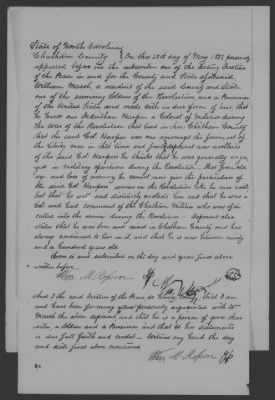 State of North Carolina
Chatham County } On this 23rd day of May 1853 personally
appeared before me the subscriber one of the acting Justices
of the Peace in and for the County and State aforesaid
William Marsh, a resident of the said County and State
one of the surviving Soldiers of the Revolution, and a Pensioner
of the United States and made oath in due form of law, that
he knew one Harper a Colonel of Militia during
the War of the Revolution that lived in Chatham County
that the said Col. Harper was amongst the foremost of
the Liberty men in that time and
of the said Col. Harper he thinks that he was generally engaged
in during the Revolution. That from old
age and loss of memory he cannot now give the particulars of
the said Col. Harper's service in the Revolution that he now could
but that he well and distinctly recollects him and that he was a
Col. and had command of the Chatham Militia who was often
called into the service during the Revolution. Deponent also
states that he was born and raised in Chatham County and has
always continued to live in it, and that he is now between ninety
and a hundred years old.
Sworn to and subscribed on the day and year first above
written before
Wm.
And I the said Justice of the Peace do certify that I am
and have been for many years personally acquainted with
Marsh the above deponent, and that he is a person of good character,
a Soldier and a Pensioner and that to his statements
is due full faith and credit. Witness my hand the day
and date first above mentioned
Wm.